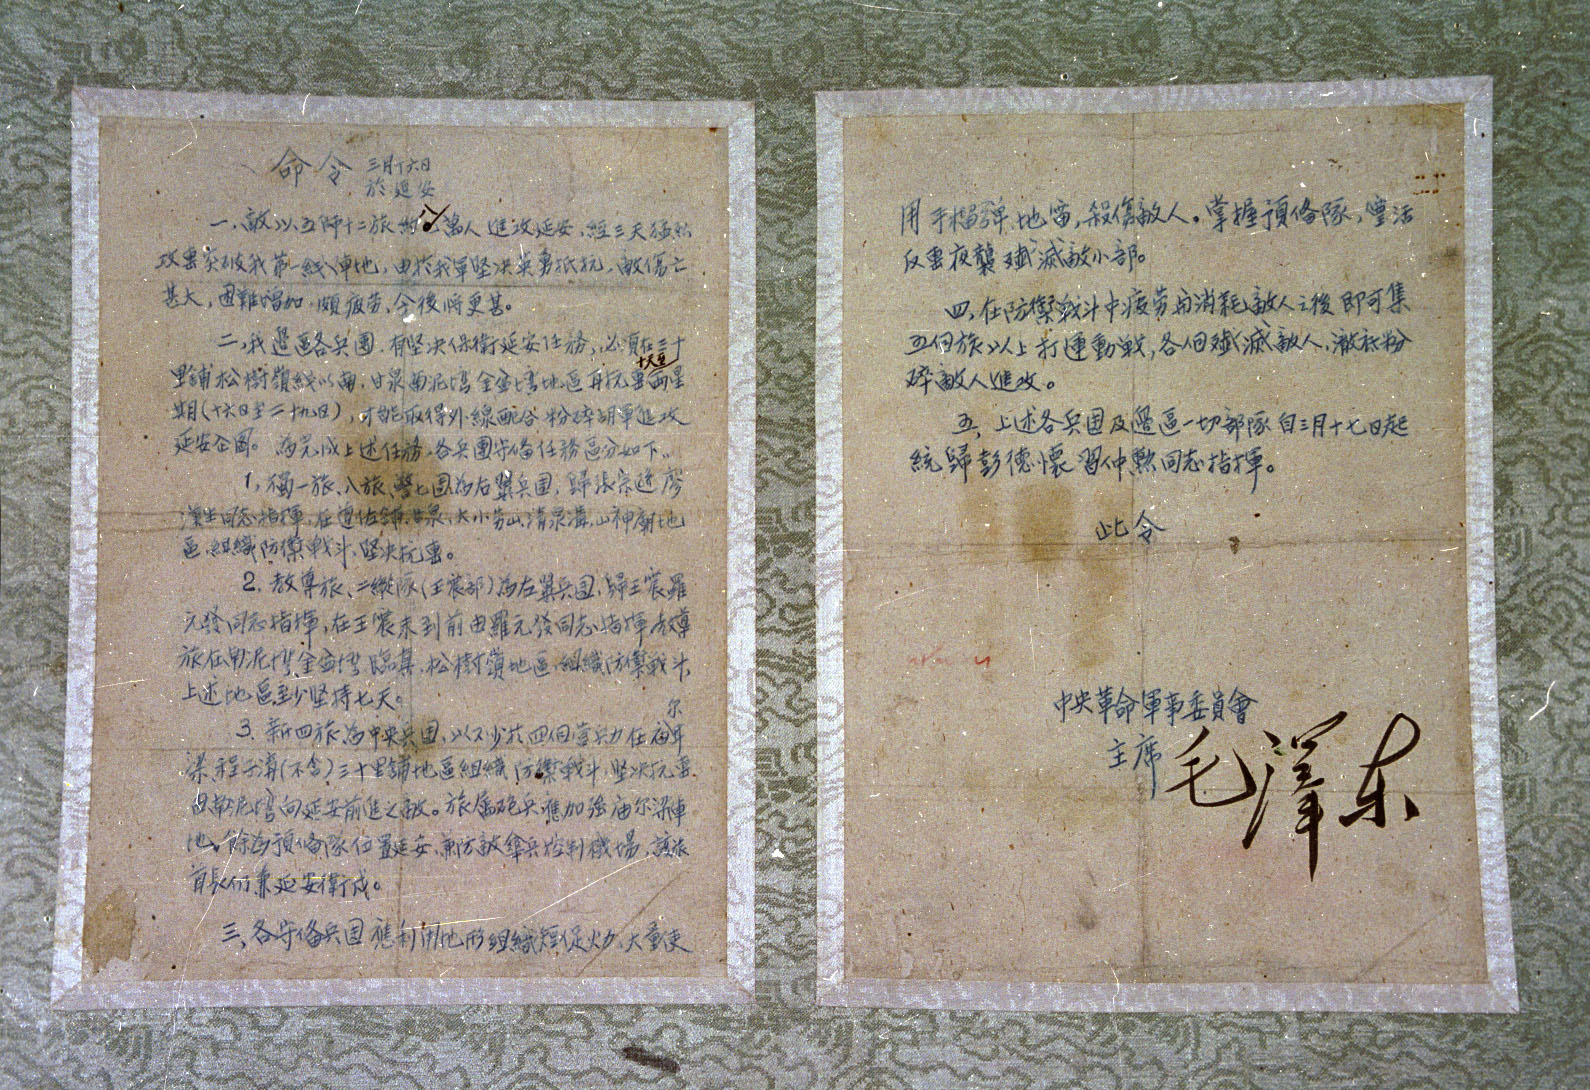 命令 三月十六日
於延安
一、敵以五師十二旅約八萬人進攻延安，經三天猛烈
攻擊突破我第一綫陣地，由於我軍坚决英勇抵抗，敵傷亡
甚大，困難增加，頗疲劳，今後將更甚。
二、我邊區各兵團，有坚决保衛延安任務，必須在三十
里鋪松樹嶺线以南，甘泉南泥塆金盆塆地區再抗擊十天至兩星
期（十六日至二十九日），才能取得外線配合粉碎胡軍進攻
延安企圖。為完成上述任務，各兵團守俻任務區分如下。
1，獨一旅、八旅、警七團為右翼兵团，歸張宗遜廖
漢生同志指揮，在道佐鋪甘泉、大小劳山、清泉溝，山神廟地
區，組織防禦戰斗，坚决抗擊。
2．教導旅、二縱隊（王震部）為左翼兵团，歸王震羅
元發同志指揮，在王震未到前由羅元發同志指揮教導
旅在南泥塆金盆塆臨真，松樹嶺地區，組織防禦戰斗，
上述地區至少坚持七天。
3．新四旅為中央兵团，以不少於四個营兵力在庙尔
梁，程子溝（不含）三十里鋪地區組織防禦戰斗，坚决抗擊
由南泥塆向延安前進之敵。旅属砲兵應加強庙尔梁陣
地，餘為預俻隊位置延安，兼防敵傘兵控制機場，該旅
首長仍兼延安衛戍。
三、各守俻兵团應利用地形組織短促火力，大量使
用手榴弹地雷，殺傷敵人。掌握預俻隊，靈活
反擊夜襲殲滅敵小部。
四、在防禦戰斗中疲劳與消耗敵人之後即可集
五個旅以上打運動戰，各個殲滅敵人，澈底粉
碎敵人進攻。
五、上述各兵团及邊區一切部隊自三月十七日起
統歸彭德懷習仲勲同志指揮。
此令
中央革命軍事委員會
主席 毛澤东